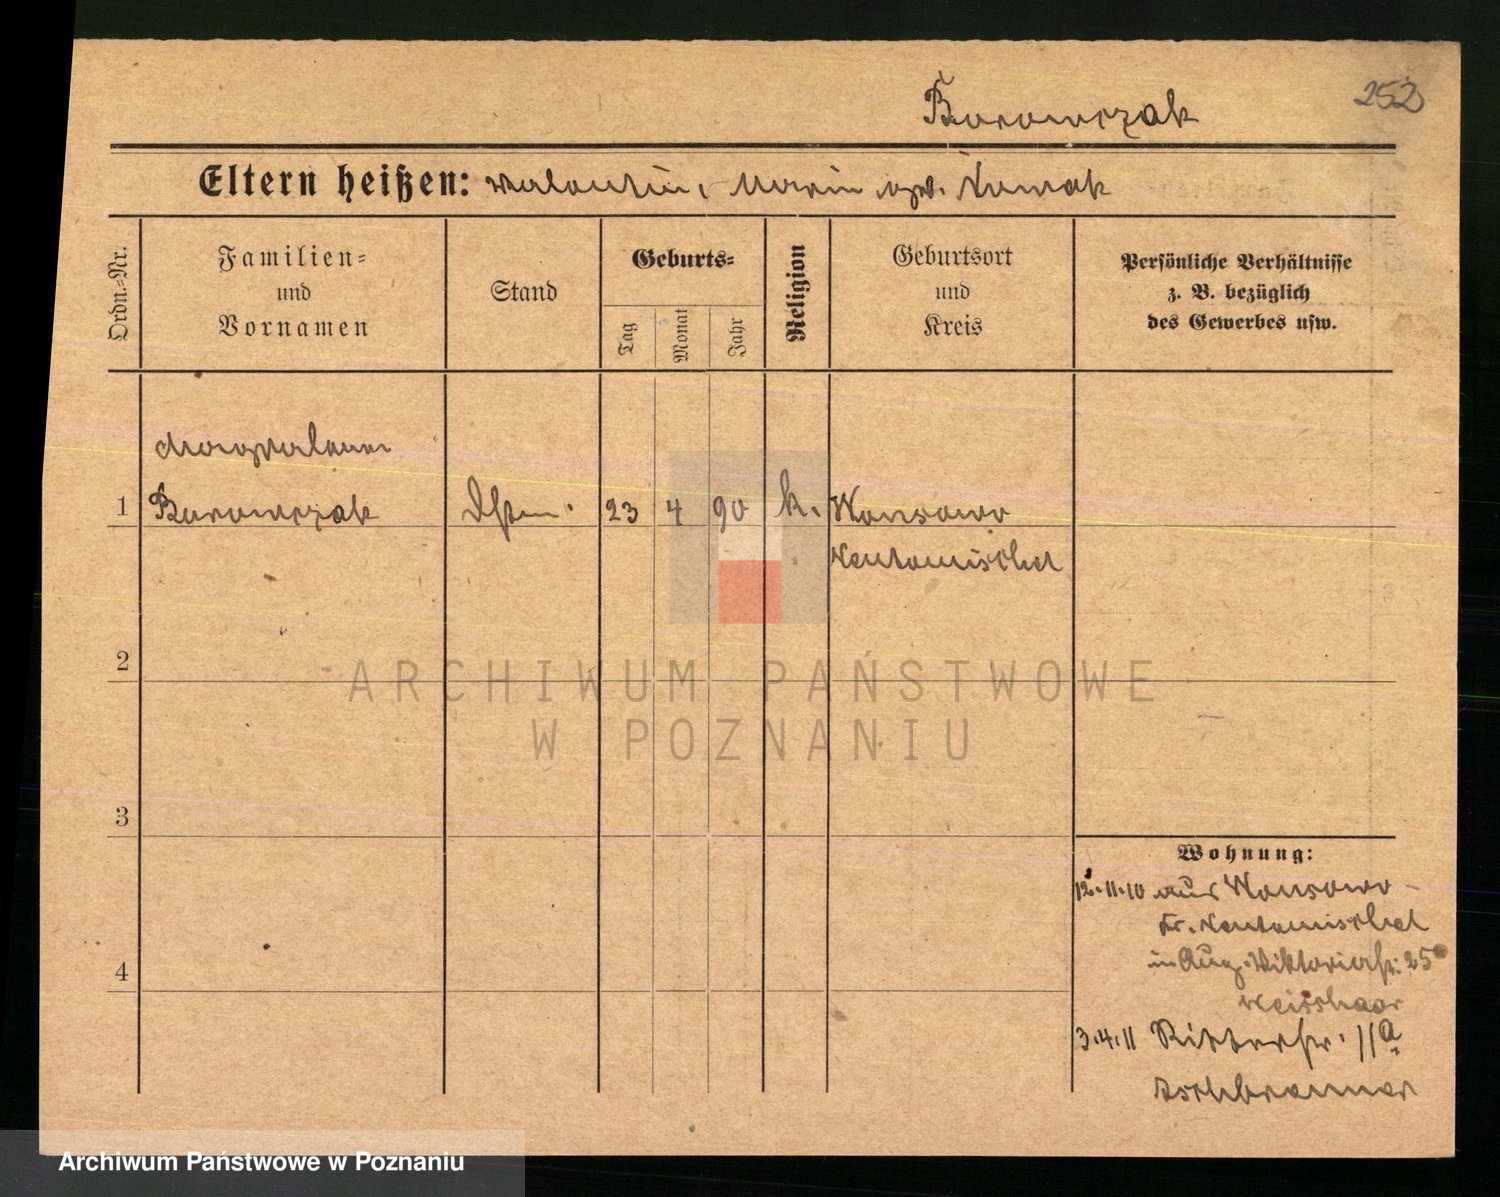 252
Borowczak
Eltern heißen: Valentin, Marie geb. Nowak
Ordn.-Nr.
Familien-
und
Vornamen
Stand
Geburts-
Tag
Monat
Jahr
Religion
Geburtsort
und
Kreis
Persönliche Verhältnisse
z. B. bezüglich
des Gewerbes usw.
Magdalena
1 Borowczak 23 4 90 k. Wonsowo
Neutomischel
2
3
4
ARCHIWUM PAŃSTWOWE
W POZNANIU
Wohnung:
12.11.10 aus Wonsowo
Kr. Neutomischel
in Aug. Viktoriastr. 25
Weisshaar
3.4.11 Ritterstr. 11a
Archiwum Państwowe w Poznaniu